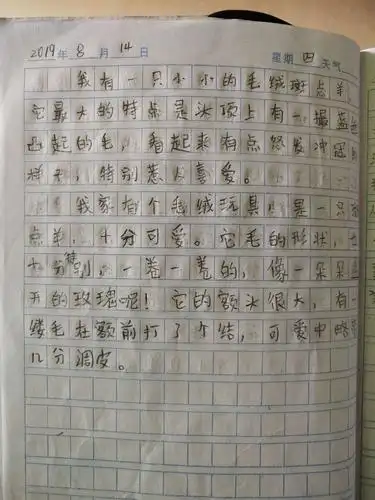 2019年8月14日 星期四 天气
我有一只小小的毛绒斑点羊,
它最大的特点是头顶上有一撮蓝
凸起的毛,看起来有点怒发冲冠
样子,特别惹人喜爱。
我家有个毛绒玩具,是一只
点羊,十分可爱。它毛的形状,也
十分特别,一卷一卷的,像一朵朵
开的玫瑰呢!它的额头很大,有一
缕毛在额前打了个结,可爱中略
几分调皮。